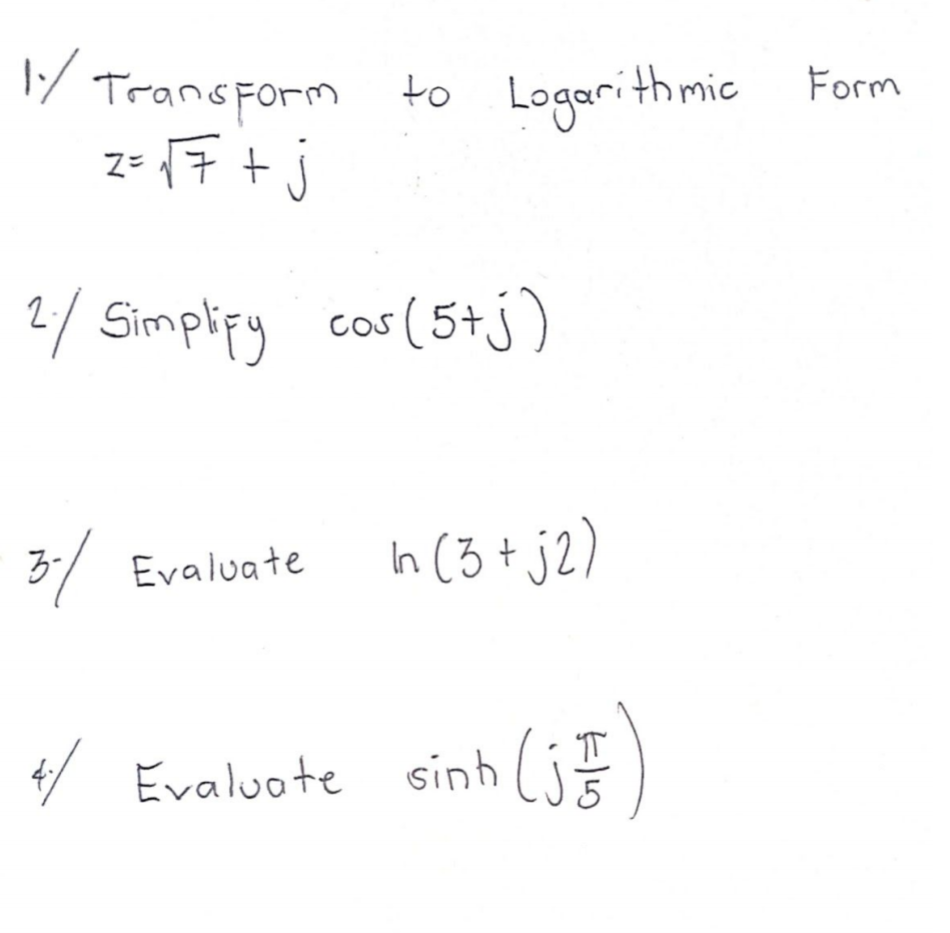 1./ Transform to Logarithmic Form
z = √7 + j
2./ Simplify cos(5+j)
3./ Evaluate ln(3 + j2)
4./ Evaluate sinh(j π/5)